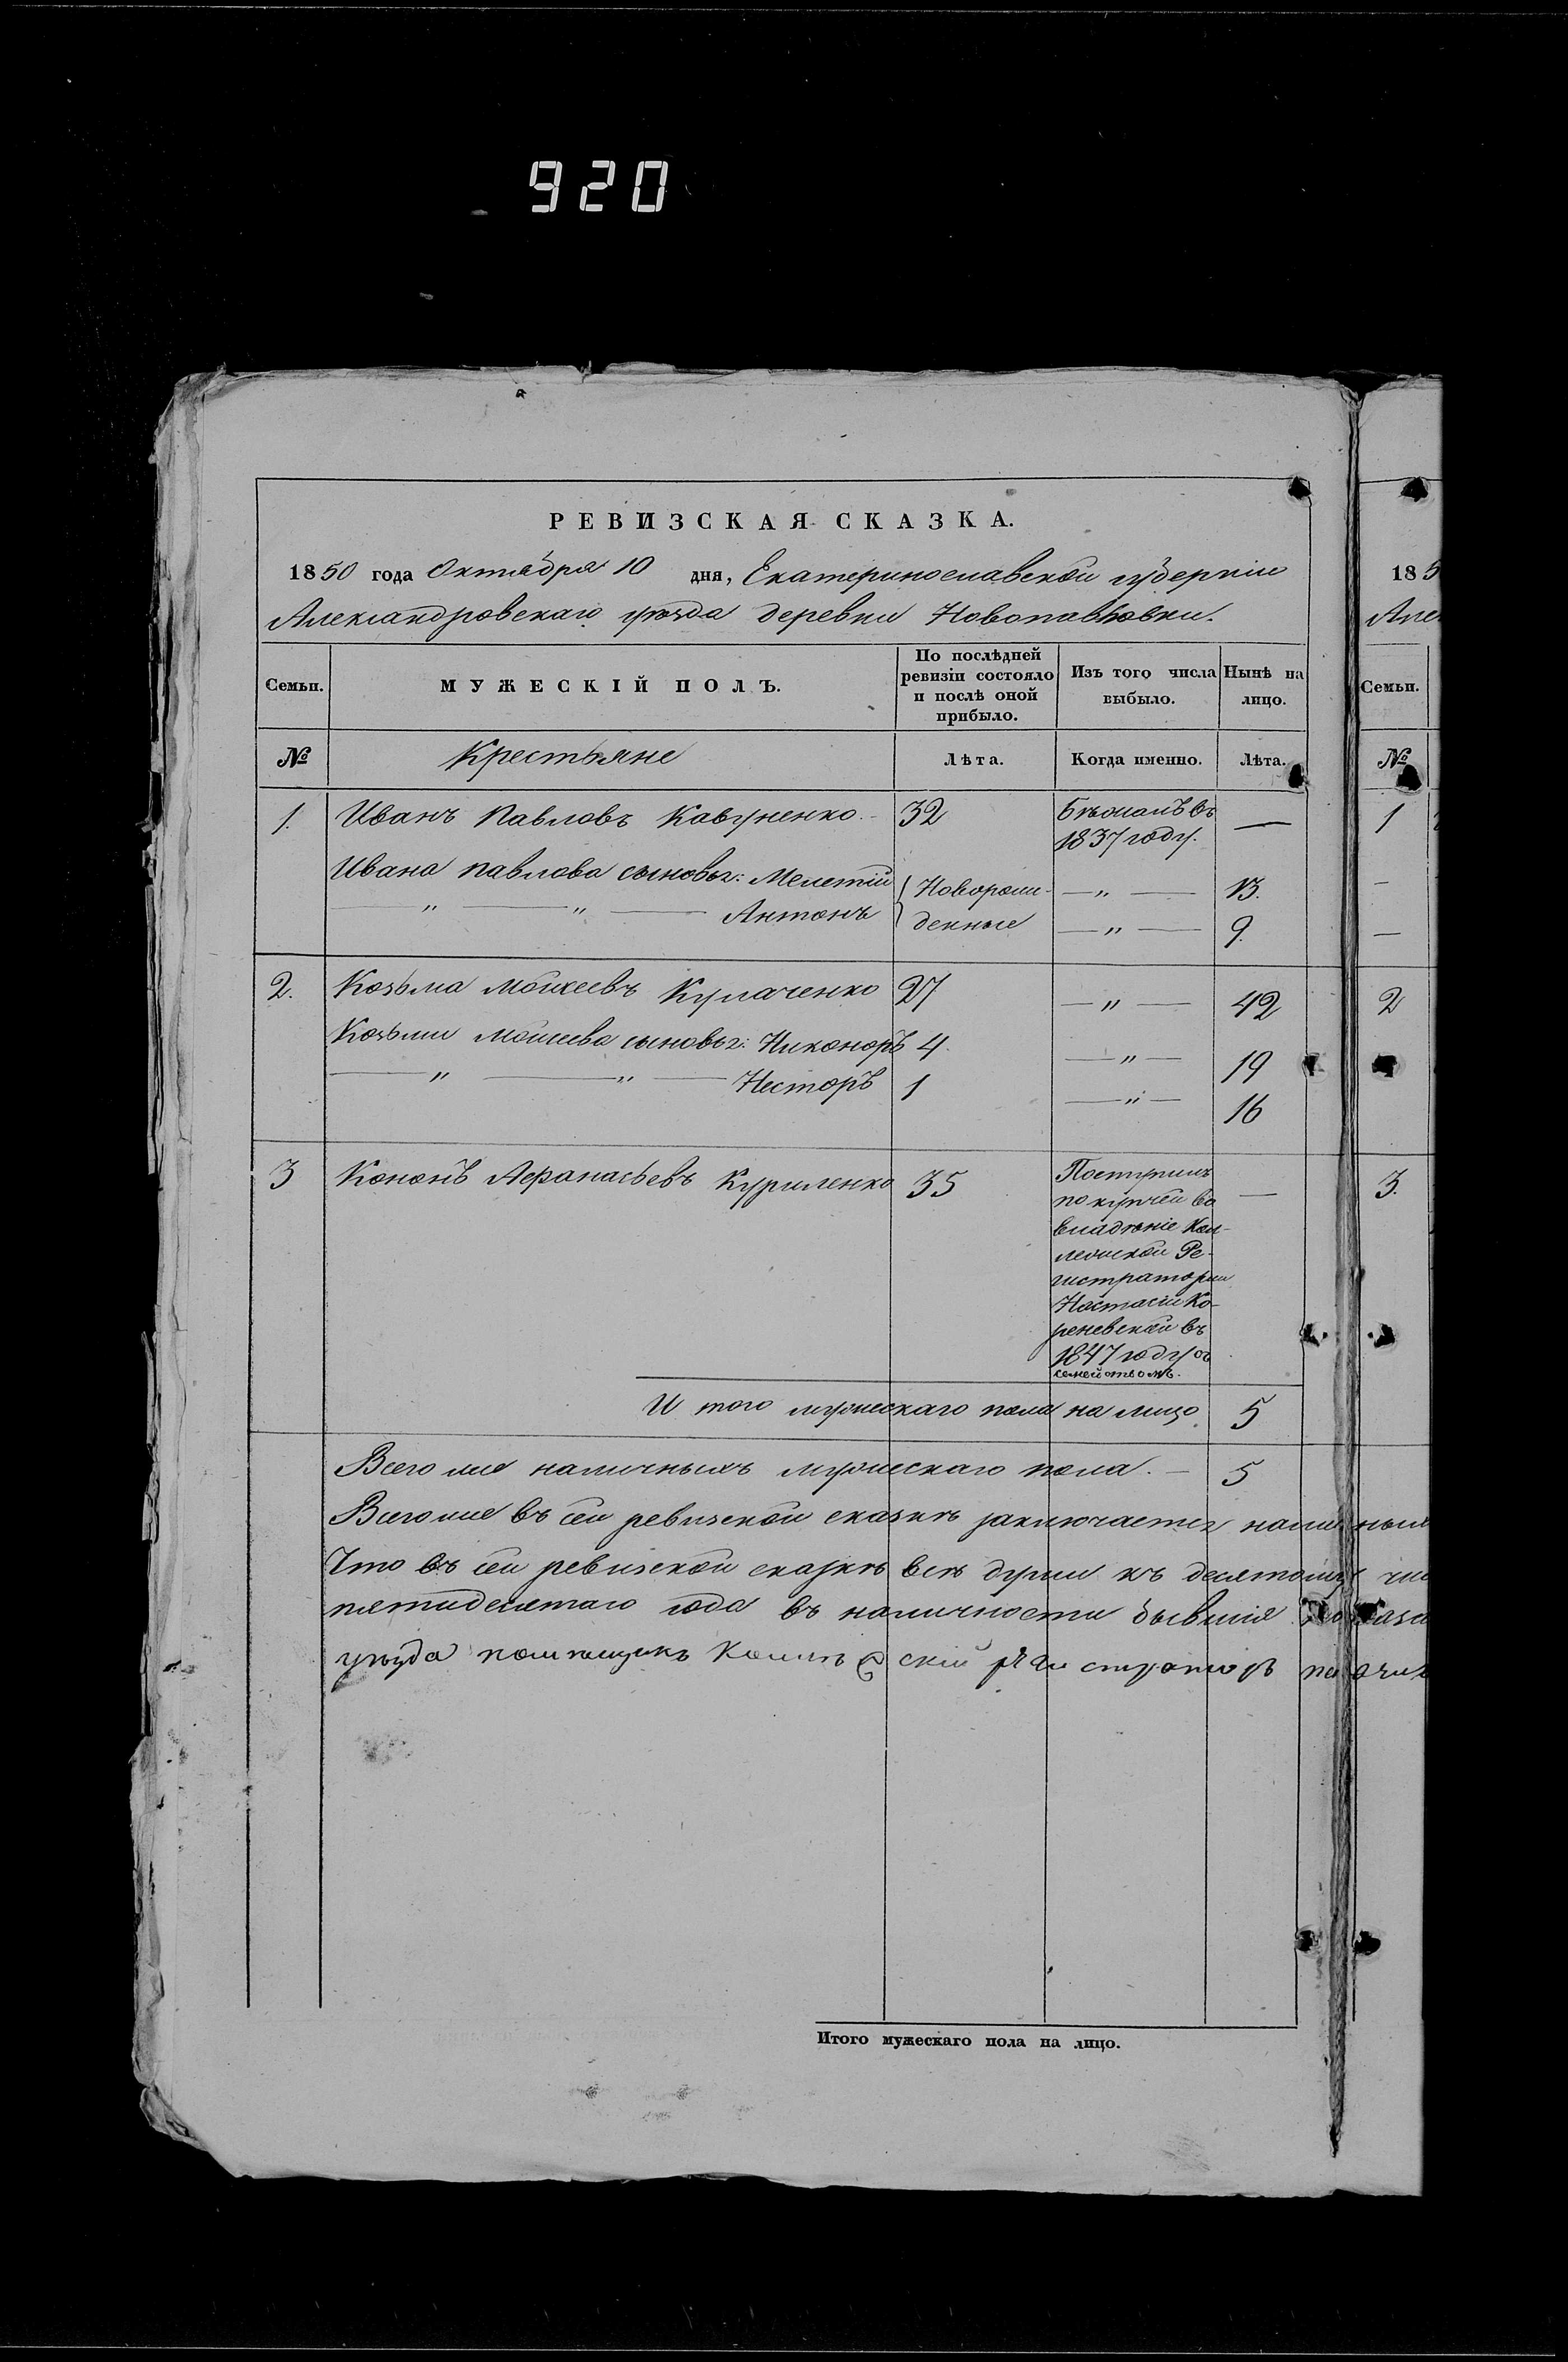 920
РЕВИЗСКАЯ СКАЗКА.
1850 года Октября 10 дня, Екатеринославской губерніи
Александровскаго уѣзда деревни Новопавловки.
Семьи. МУЖЕСКІЙ ПОЛЪ. По послѣдней ревизіи состояло и послѣ оной прибыло. Изъ того числа выбыло. Нынѣ на лицо.
№ Крестьяне Лѣта. Когда именно. Лѣта.
1. Иванъ Павловъ Кавуненко. 32 Бѣжалъ въ 1837 году. —
Ивана Павлова сыновья: Мелетій Новорож- — „ — 13.
— „ — „ — Антонъ денные — „ — 9.
2. Козьма Моисеевъ Кулаченко 27 — „ — 42
Козьмы Моисеева сыновья: Никоноръ 4. — „ — 19
— „ — „ — Несторъ 1 — „ — 16
3 Кононъ Афанасьевъ Куриленко 35 Поступилъ —
по купчей во
владѣніе Кол-
лежской Ре-
гистраторши
Настасіи Ко-
реневской въ
1847 году съ
семействомъ.
И того мужескаго пола на лицо 5
Всего же наличныхъ мужескаго пола. — 5
Всего же въ сей ревизской сказкѣ заключается
Что въ сей ревизской сказкѣ всѣ души къ десятому
пятидесятаго года въ наличности бывшія
уѣзда помѣщикъ
Итого мужескаго пола на лицо.
185
Але
Семьи.
№
1
—
—
2
3.